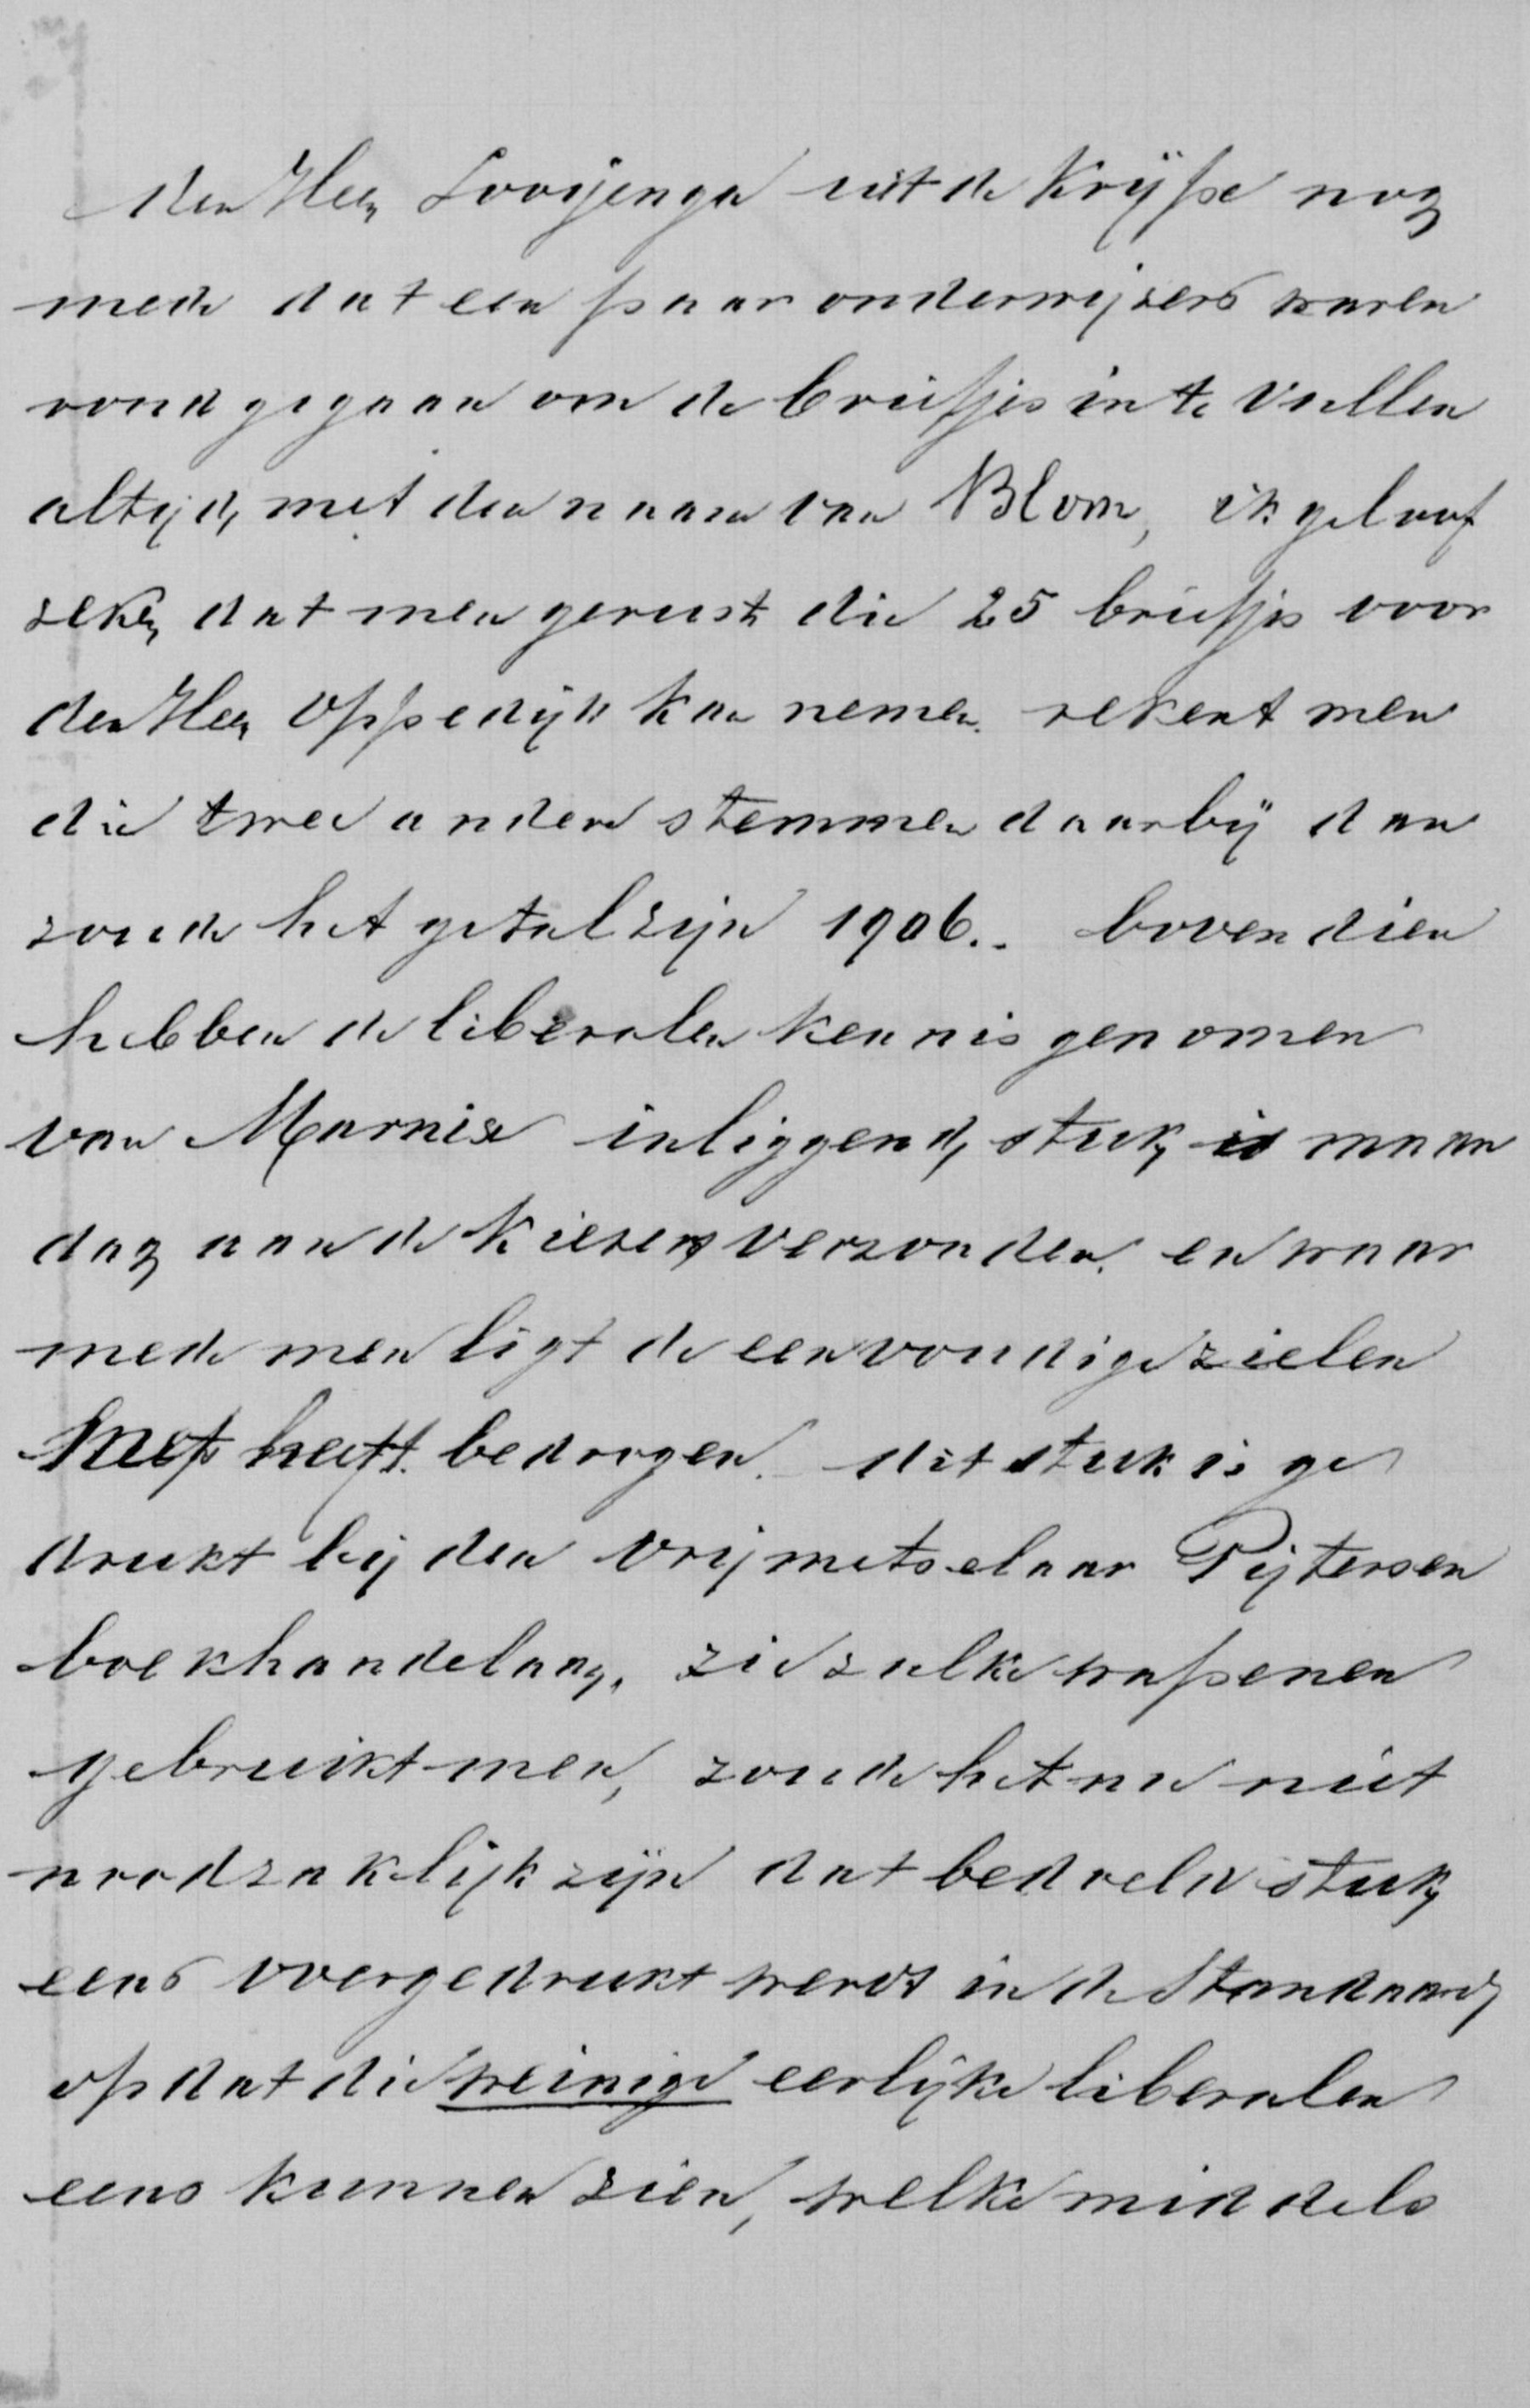 den Heer Looijenga uit de Krijpe nog
mede dat een paar onderwijzers waren
rond gegaan om de briefjes in te vullen
altijd, met den naam van Blom, ik geloof
zeker dat men gerust die 25 briefjes voor
den Heer Oppedijk kan nemen. rekent men
die twee andere stemmen daarbij dan
zoude het getal zijn 1906.. bovendien
hebben de liberalen kennis genomen
van Marnixe inliggend stuk is maan
dag aan de Kiezers verzonden. en waar
mede men ligt de eenvoudige zielen
heeft bedrogen. dit stuk is ge
drukt bij den vrijmetselaar Pijtersen
boekhandelaar, zie zulke wapenen
gebruikt men, zoude het nu niet
noodzaklijk zijn dat bedoeld stuk
eens overgedrukt werdt in de Standaard
op dat die weinige eerlijke liberalen
eens kunnen zien, welke middels